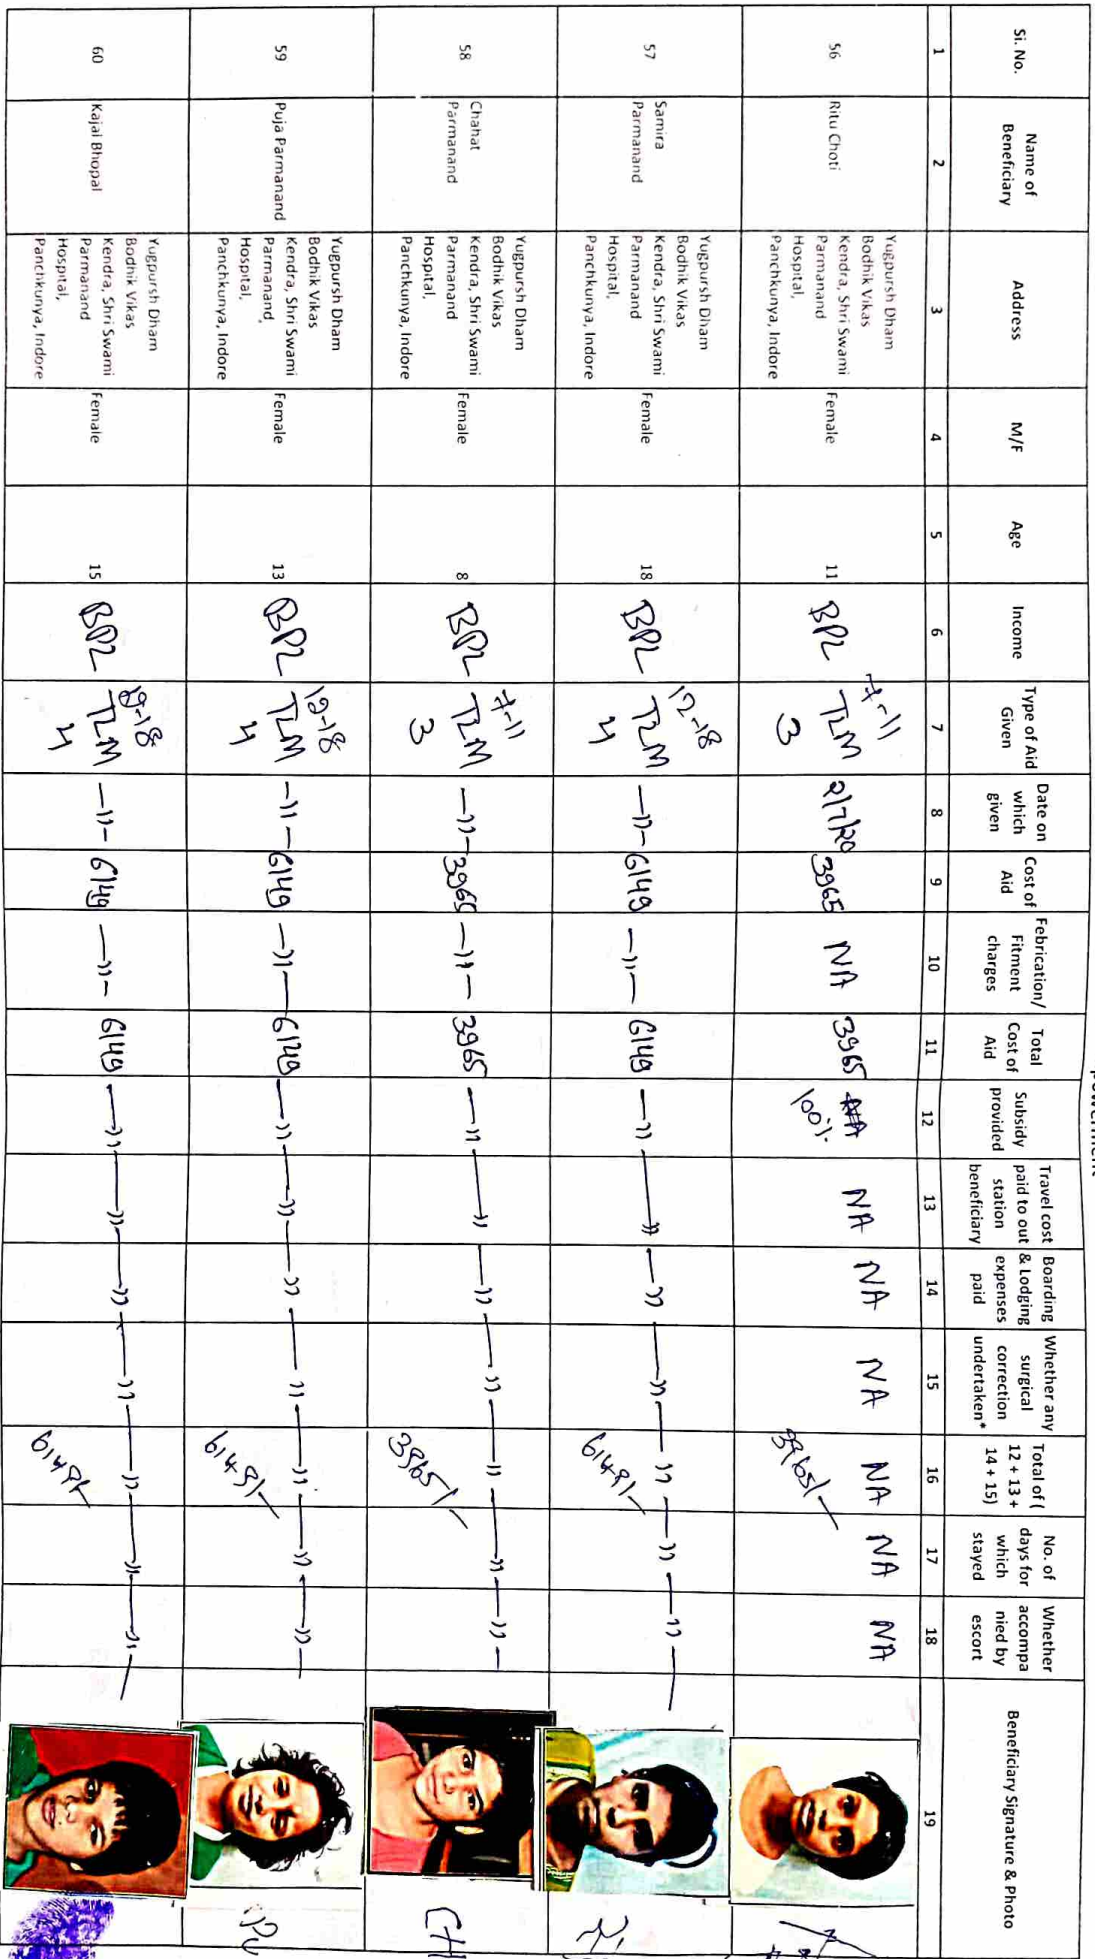 powerment
Si. No.
Name of
Beneficiary
Address
M/F
Age
Income
Type of Aid
Given
Date on
which
given
Cost of
Aid
Febrication/
Fitment
charges
Total
Cost of
Aid
Subsidy
provided
Travel cost
paid to out
station
beneficiary
Boarding
& Lodging
expenses
paid
Whether any
surgical
correction
undertaken*
Total of (
12 + 13 +
14 + 15)
No. of
days for
which
stayed
Whether
accompa
nied by
escort
Beneficiary Signature & Photo
1 2 3 4 5 6 7 8 9 10 11 12 13 14 15 16 17 18 19
56
Ritu Choti
Yugpursh Dham
Bodhik Vikas
Kendra, Shri Swami
Parmanand
Hospital,
Panchkunya, Indore
Female
11
BPL
7-11
TLM
3
2/7/20
3965
NA
3965
NA
100%
NA
NA
NA
NA
3965/-
NA
NA
57
Samira
Parmanand
Yugpursh Dham
Bodhik Vikas
Kendra, Shri Swami
Parmanand
Hospital,
Panchkunya, Indore
Female
18
BPL
12-18
TLM
4
—"—
6149
—"—
6149
—"— —"— —"— —"— —"— —"— —"—
6149/-
58
Chahat
Parmanand
Yugpursh Dham
Bodhik Vikas
Kendra, Shri Swami
Parmanand
Hospital,
Panchkunya, Indore
Female
8
BPL
7-11
TLM
3
—"—
3965
—"—
3965
—"— —"— —"— —"— —"— —"— —"—
3965/-
CH
59
Puja Parmanand
Yugpursh Dham
Bodhik Vikas
Kendra, Shri Swami
Parmanand,
Hospital,
Panchkunya, Indore
Female
13
BPL
12-18
TLM
4
—"—
6149
—"—
6149
—"— —"— —"— —"— —"— —"— —"—
6149/-
60
Kajal Bhopal
Yugpursh Dham
Bodhik Vikas
Kendra, Shri Swami
Parmanand
Hospital,
Panchkunya, Indore
Female
15
BPL
12-18
TLM
4
—"—
6149
—"—
6149
—"— —"— —"— —"— —"— —"— —"—
6149/-